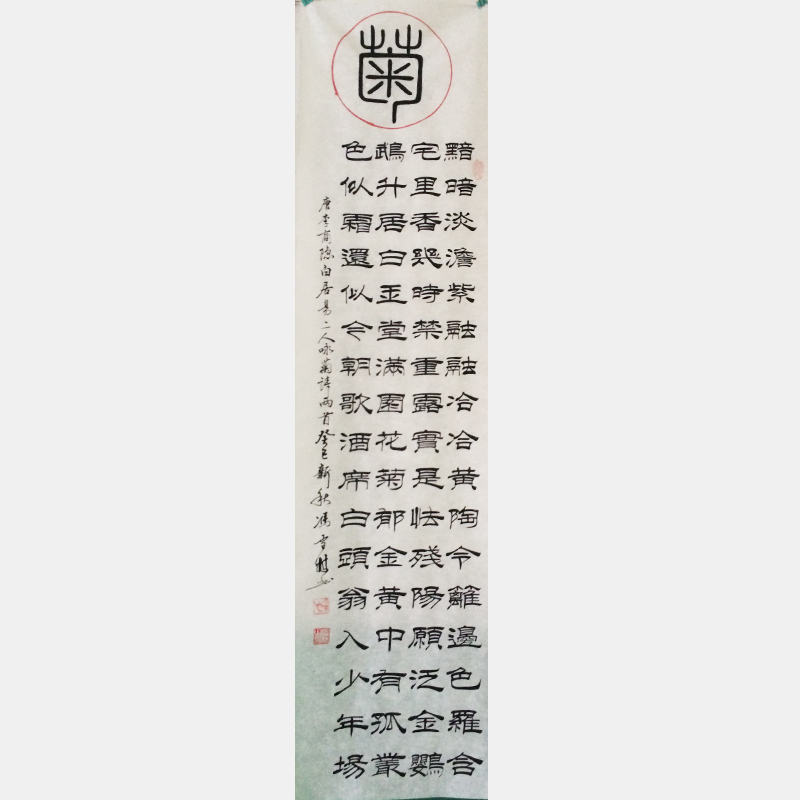 菊
黯暗淡澹紫融融冶冶黄陶令籬邊色羅含
宅里香幾時禁重露實是怯殘陽願泛金鸚
鵡升居白玉堂滿園花菊郁金黄中有孤叢
色似霜還似今朝歌酒席白頭翁入少年場
唐李商隐白居易二人咏菊詩兩首癸巳新秋馮雪